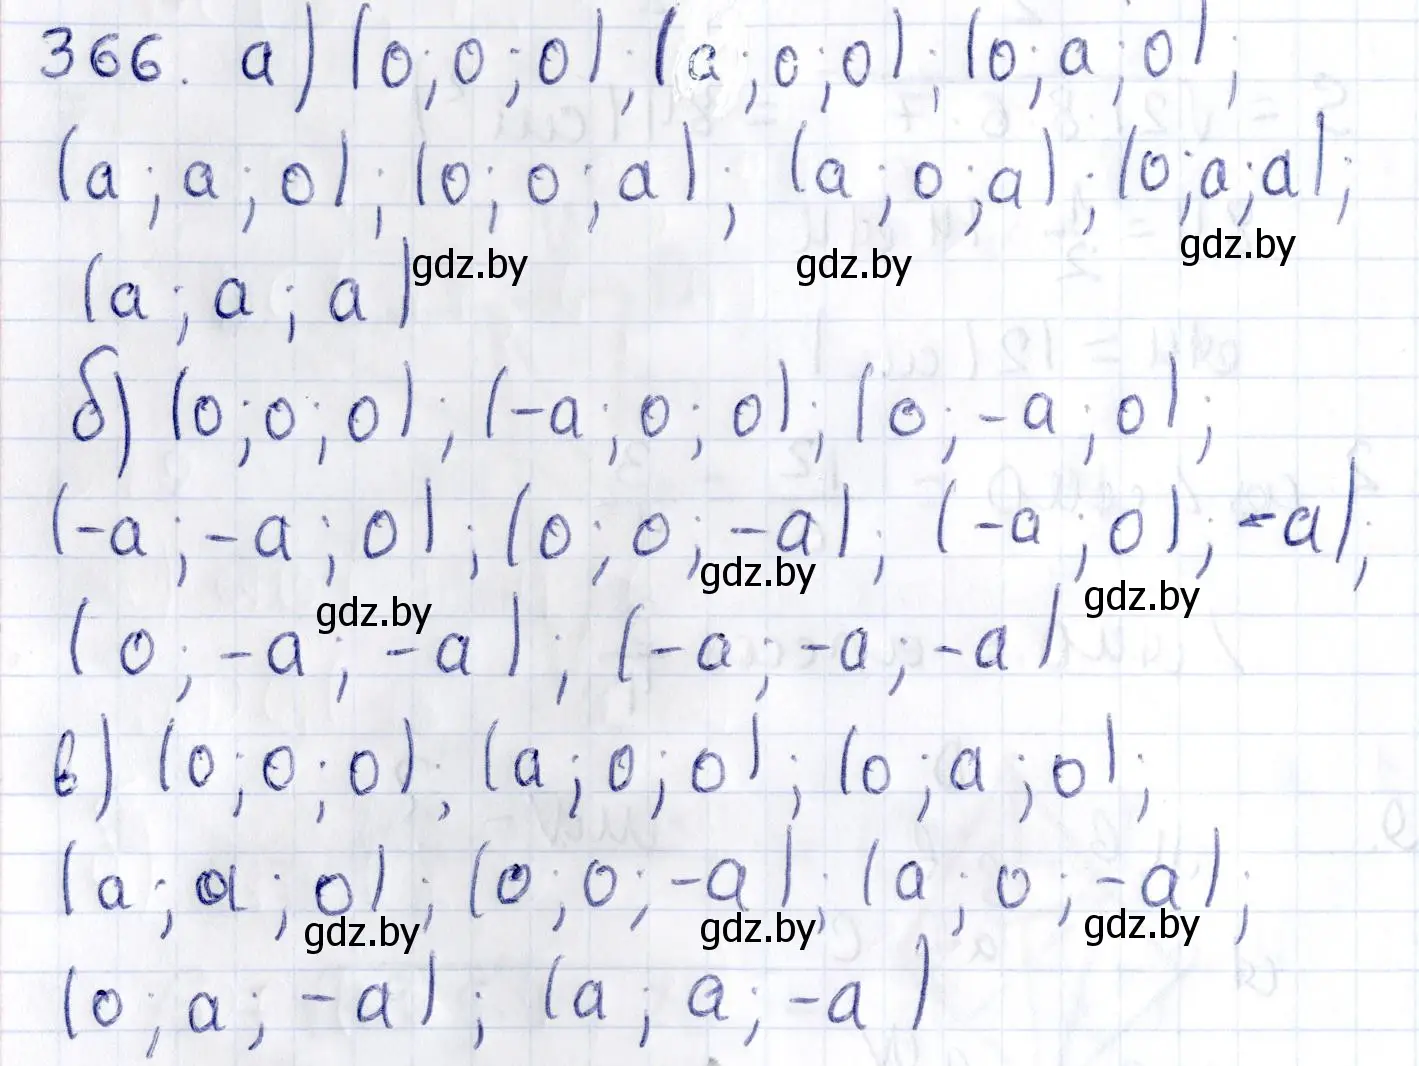 366. а) (0; 0; 0); (а; 0; 0); (0; а; 0);
(а; а; 0); (0; 0; а); (а; 0; а); (0; а; а);
gdz.by gdz.by gdz.by
(а; а; а)
б) (0; 0; 0); (-а; 0; 0); (0; -а; 0);
(-а; -а; 0); (0; 0; -а); (-а; 0); -а);
gdz.by gdz.by gdz.by
(0; -а; -а); (-а; -а; -а)
в) (0; 0; 0); (а; 0; 0); (0; а; 0);
(а; а; 0); (0; 0; -а); (а; 0; -а);
gdz.by gdz.by gdz.by
(0; а; -а); (а; а; -а)